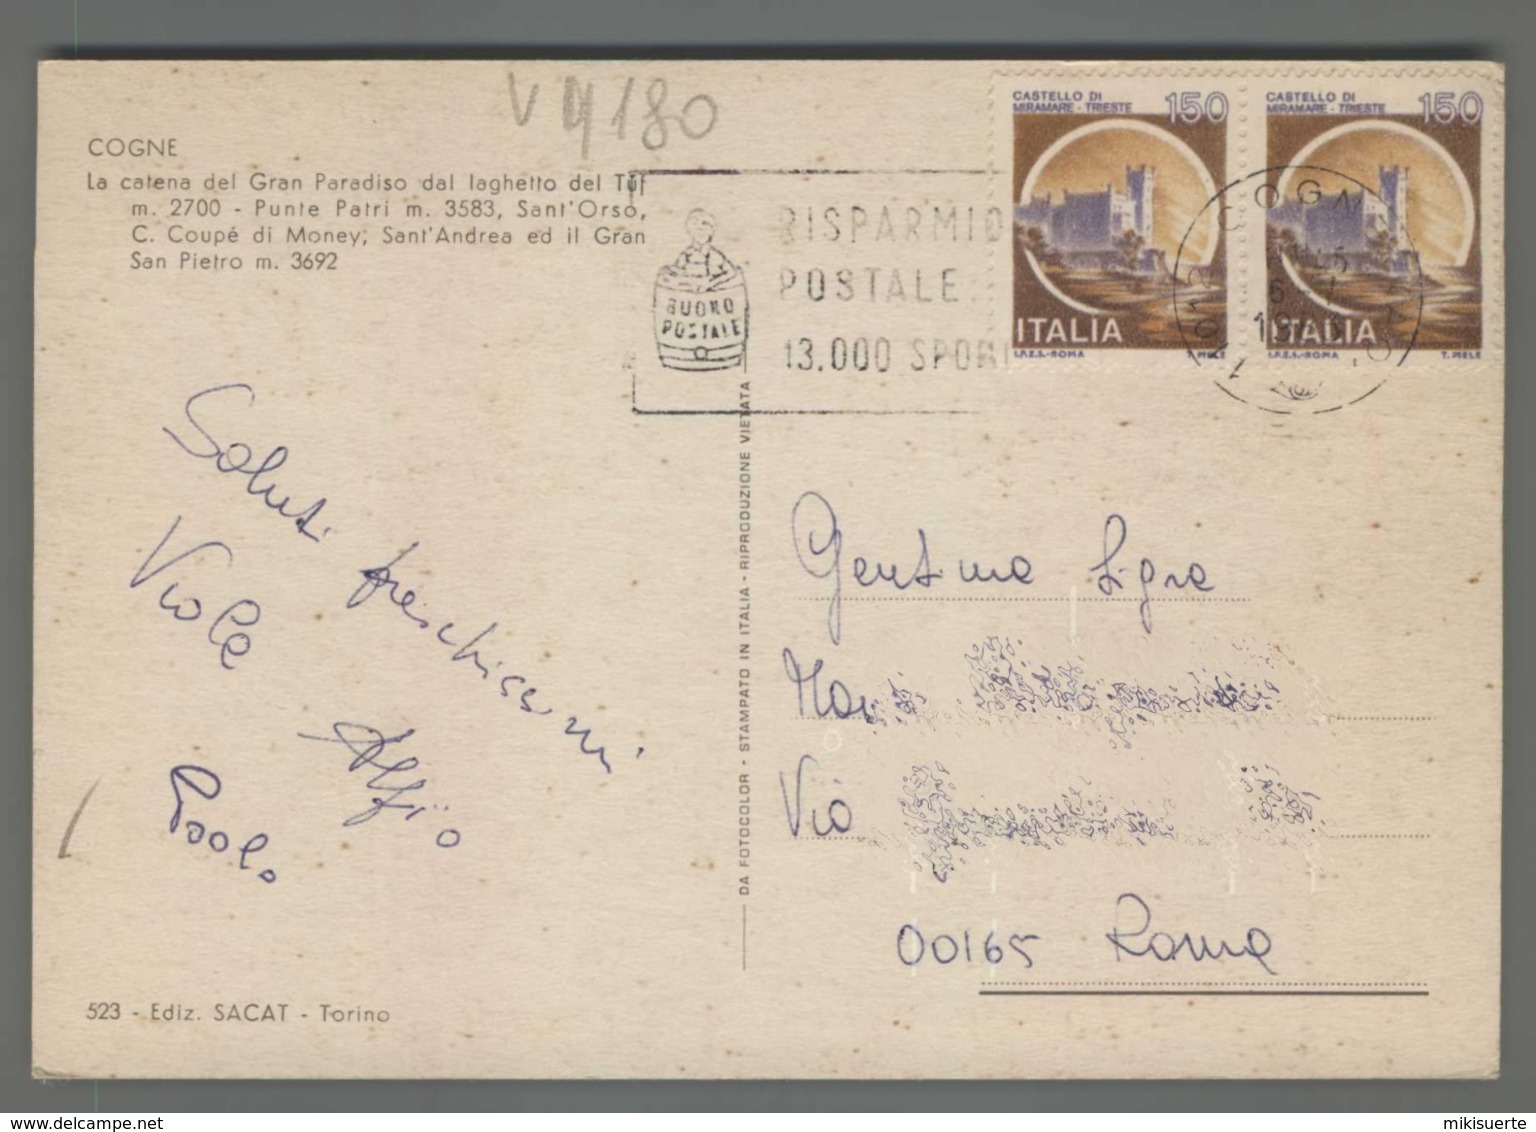 V 9180
COGNE
La catena del Gran Paradiso dal laghetto del Tuf
m. 2700 - Punte Patri m. 3583, Sant'Orso,
C. Coupé di Money, Sant'Andrea ed il Gran
San Pietro m. 3692
BUONO
POSTALE
RISPARMIO
POSTALE
13.000 SPOR
CASTELLO DI
MIRAMARE - TRIESTE
150
ITALIA
I.P.Z.S.-ROMA
T. MELE
CASTELLO DI
MIRAMARE - TRIESTE
150
ITALIA
I.P.Z.S.-ROMA
T. MELE
Saluti freschissimi
Viola
Alfio
Paolo
DA FOTOCOLOR - STAMPATO IN ITALIA - RIPRODUZIONE VIETATA
Gentima Sigra
Via
00165 Roma
523 - Ediz. SACAT - Torino
www.delcampe.net
mikisuerte